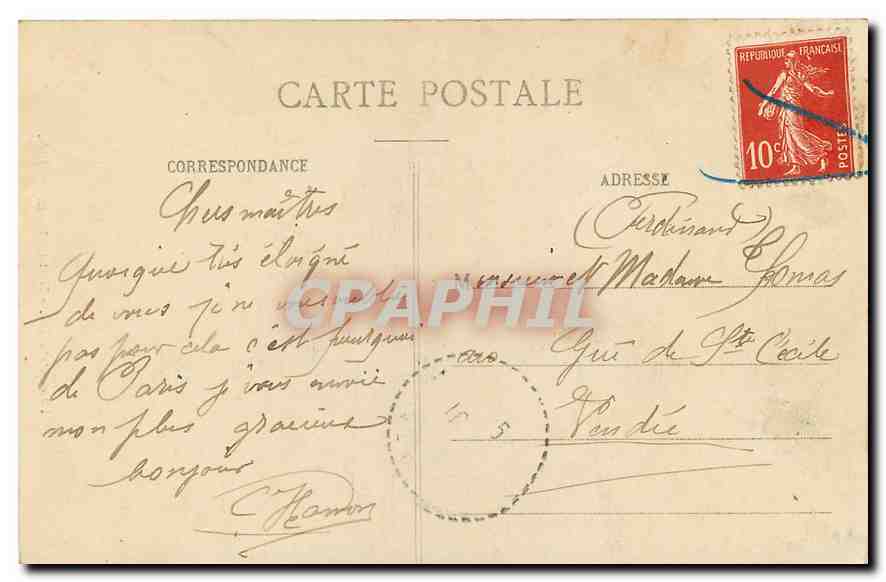 CARTE POSTALE
CORRESPONDANCE
Chers maîtres
Quoique très éloigné
de vous je ne vous oublie
pas pour cela c'est pourquoi
de Paris je vous envoie
mon plus gracieux
bonjour
C Hamon
ADRESSE
(Ferdinand)
Monsieur et Madame Thomas
au Gué de Ste Cécile
Vendée
REPUBLIQUE FRANÇAISE
10c
POSTES
5
CPAPHIL